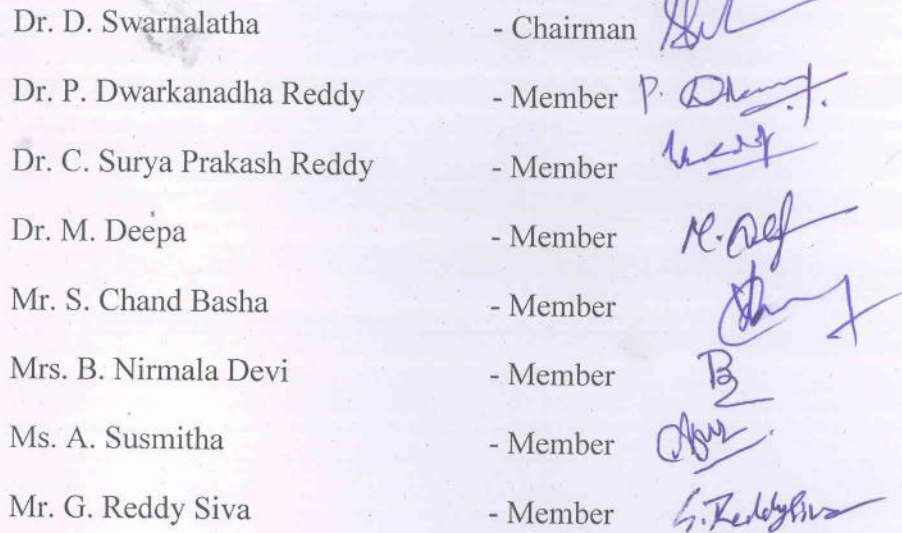 Dr. D. Swarnalatha - Chairman
Dr. P. Dwarkanadha Reddy - Member P.
Dr. C. Surya Prakash Reddy - Member
Dr. M. Deepa - Member M.
Mr. S. Chand Basha - Member
Mrs. B. Nirmala Devi - Member B
Ms. A. Susmitha - Member
Mr. G. Reddy Siva - Member G. ReddySiva